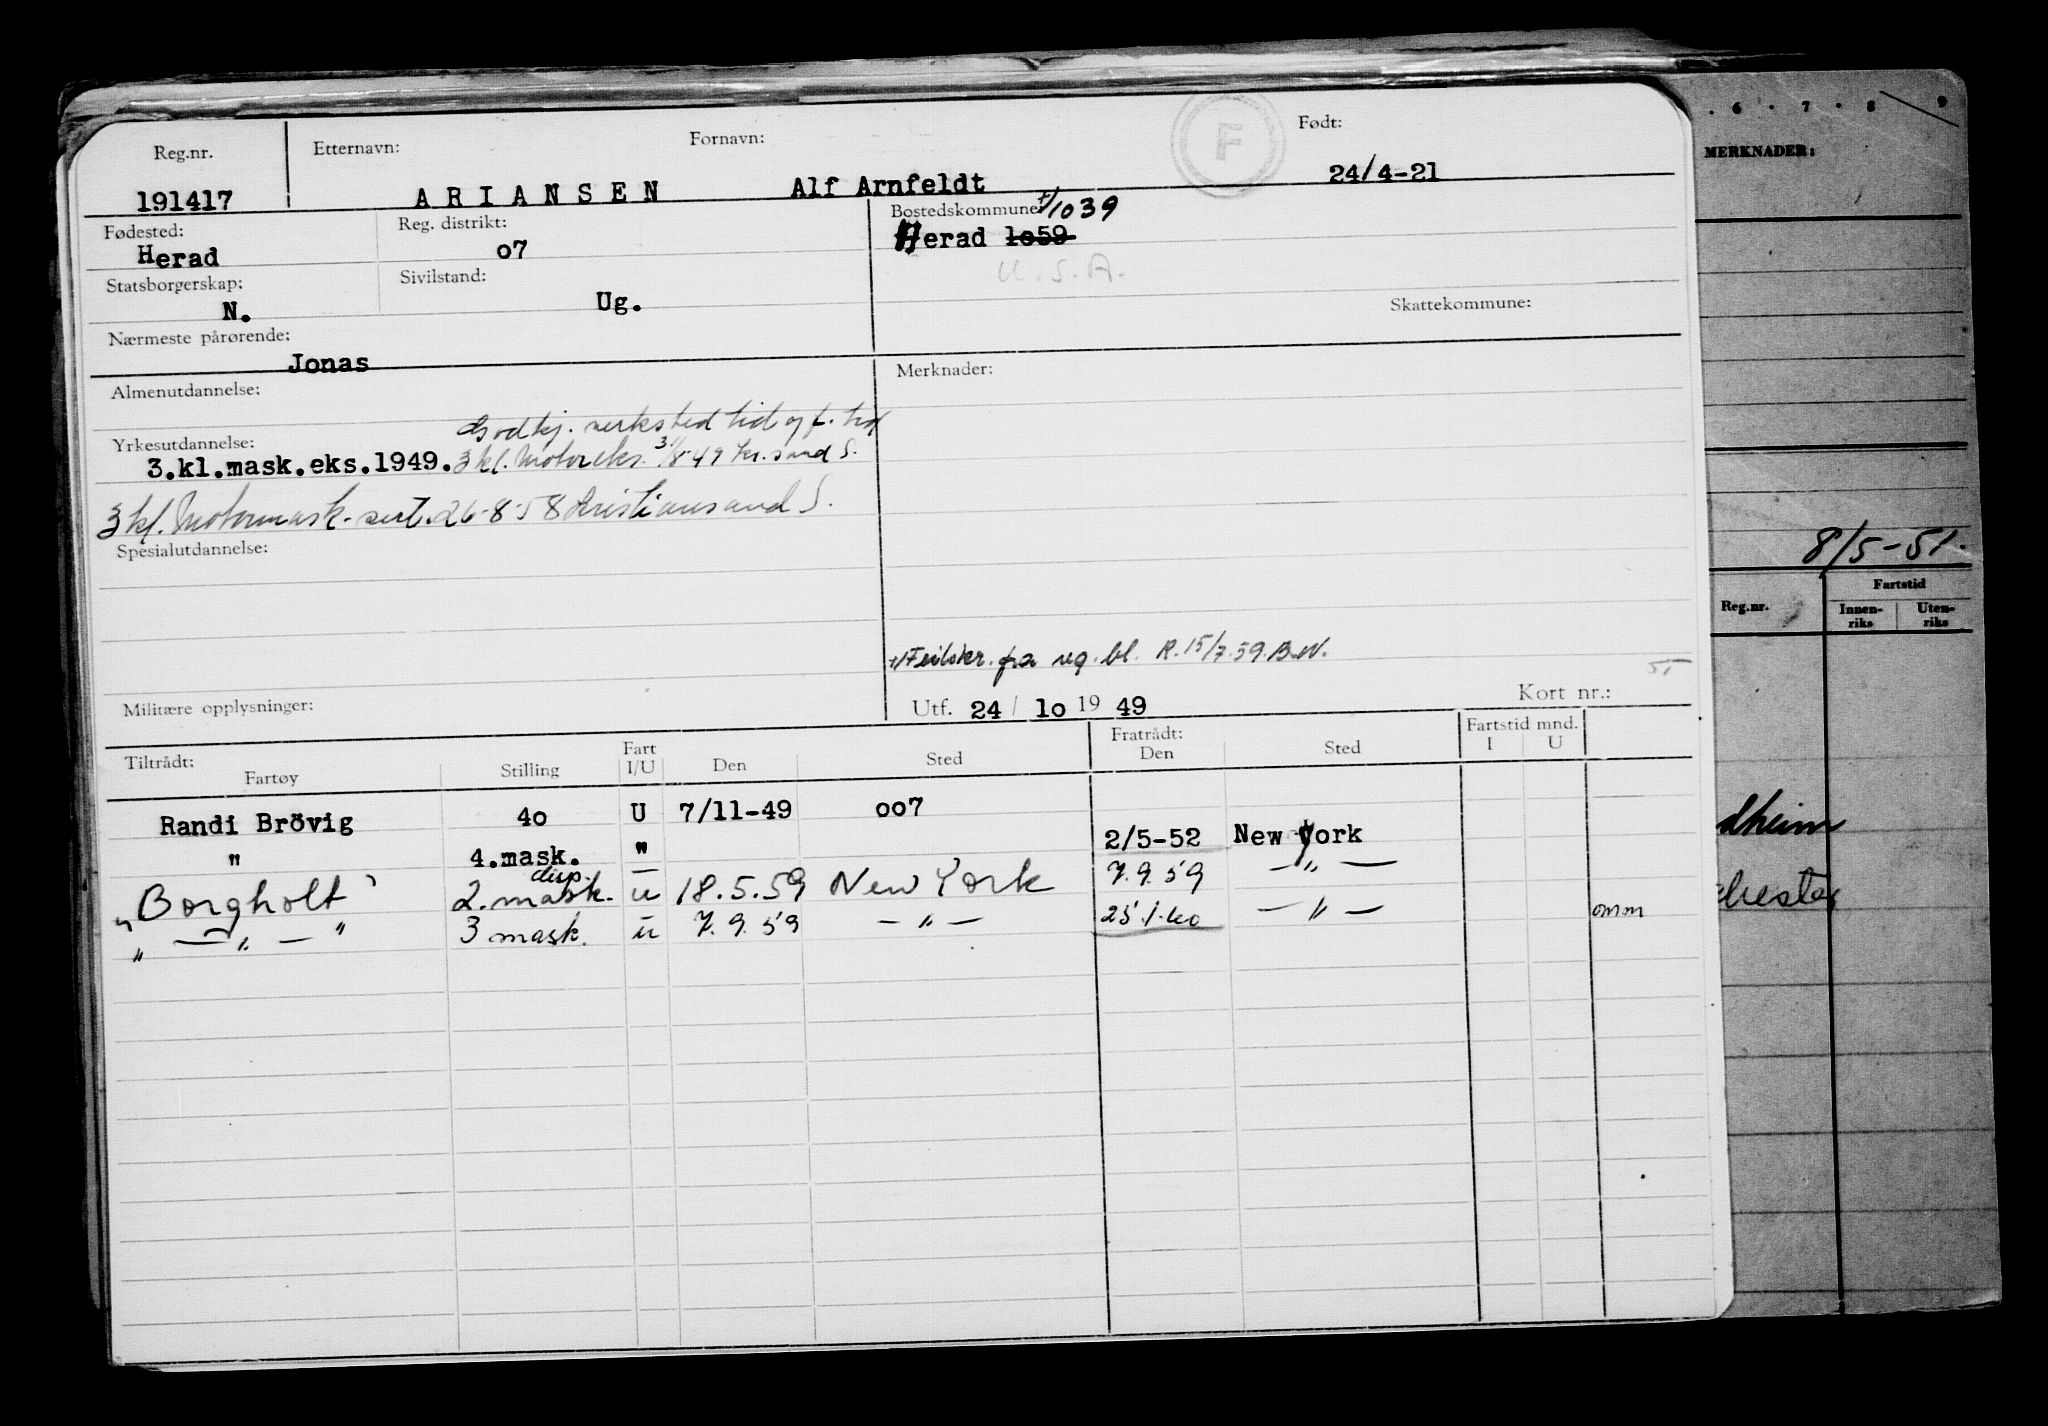 Reg.nr. Etternavn: Fornavn: F Født:
191417 ARIANSEN Alf Arnfeldt 24/4-21
Fødested: Reg. distrikt: Bostedskommune: +/1039
Herad o7 Herad 1o59
Statsborgerskap: Sivilstand: U.S.A.
N. Ug. Skattekommune:
Nærmeste pårørende:
Jonas
Almenutdannelse: Merknader:
Godkj. verksted tid og f. tid
Yrkesutdannelse:
3.kl.mask.eks.1949. 3 kl. Motoreks. 3/8-49 Kr.sand S.
3 kl. Motormask. sert. 26-8-58 Kristiansand S.
Spesialutdannelse:
+/Feilskr. fra reg. bl. R. 15/7.59. B.N.
Militære opplysninger: Utf. 24 / 1o 19 49 Kort nr.:
Tiltrådt: Fart Fratrådt: Fartstid mnd.
Fartøy Stilling I/U Den Sted Den Sted I U
Randi Brövig 4o U 7/11-49 oo7
" 4.mask. " 2/5-52 New York
"Borgholt" 2. mask. disp. u 18.5.59 New York 7.9.59 — " —
" — " — " 3 mask. u 7.9.59 — " — 25.1.60 — " — omm
6 · 7 · 8 9
MERKNADER:
8/5-51.
Reg.nr. Fartstid
Innen-riks Uten-riks
dheim